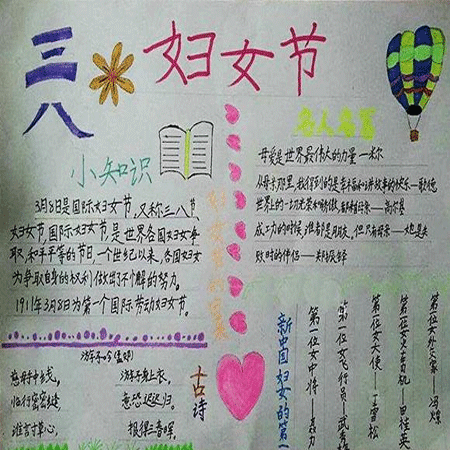 三八
妇女节
小知识
3月8日是国际妇女节,又称三八节,
妇女节,国际妇女节,是世界各国妇女争
取和平平等的节日,一个世纪以来,各国妇女
为争取自身的权利做出了不懈的努力。
1911年3月8日为第一个国际劳动妇女节。
名人名言
母爱是世界最伟大的力量—米尔
世界上的一切光荣和骄傲,都来自母亲—高尔基
成功的时候,谁都是朋友。但只有母亲—她是失
败时的伴侣—郑振铎
古诗
游子吟
慈母手中线,
游子身上衣。
临行密密缝,
意恐迟迟归。
谁言寸草心,
报得三春晖。
新中国妇女的第一
第一位女中将—聂力
第一位女飞行员—武秀梅
第一位女大使—丁雪松
第一位女火车司机—田桂英
第一位女外交家—冯嫽